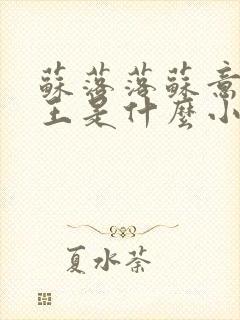 蘇落落蘇意
主是什麼小
夏水荼